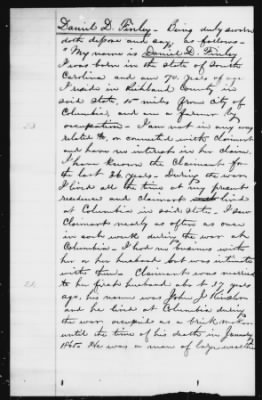 Daniel D. Finley - Being duly sworn
doth depose and say, as follows -
"My name is Daniel D. Finley
I was born in the State of South
Carolina, and am 70 years of age
I reside in Richland County in
said State, 10 miles from City of
Columbia, and am a farmer by
occupation - I am not in any way
related to, or connected with Claimant
and have no interest in her claim.
I have known the Claimant for
the last 26 years. During the war
I lived all the time at my present
residence and Claimant lived
at Columbia in said State. I saw
Claimant nearly as often as once
in each week during the war at
Columbia. I had no business with
her or her husband but was intimate
with them. Claimant was married
to her first husband about 27 years
ago, his name was John J.
and he lived at Columbia during
the war occupied as a brick mason
until the time of his death in January
1865. He was a man of large wealth
23